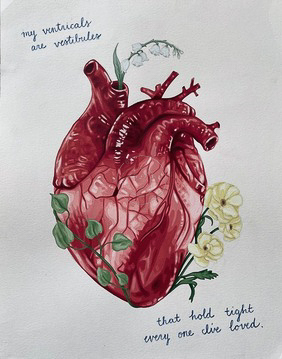 my ventricals
are vestibules
that hold tight
every one i've loved.